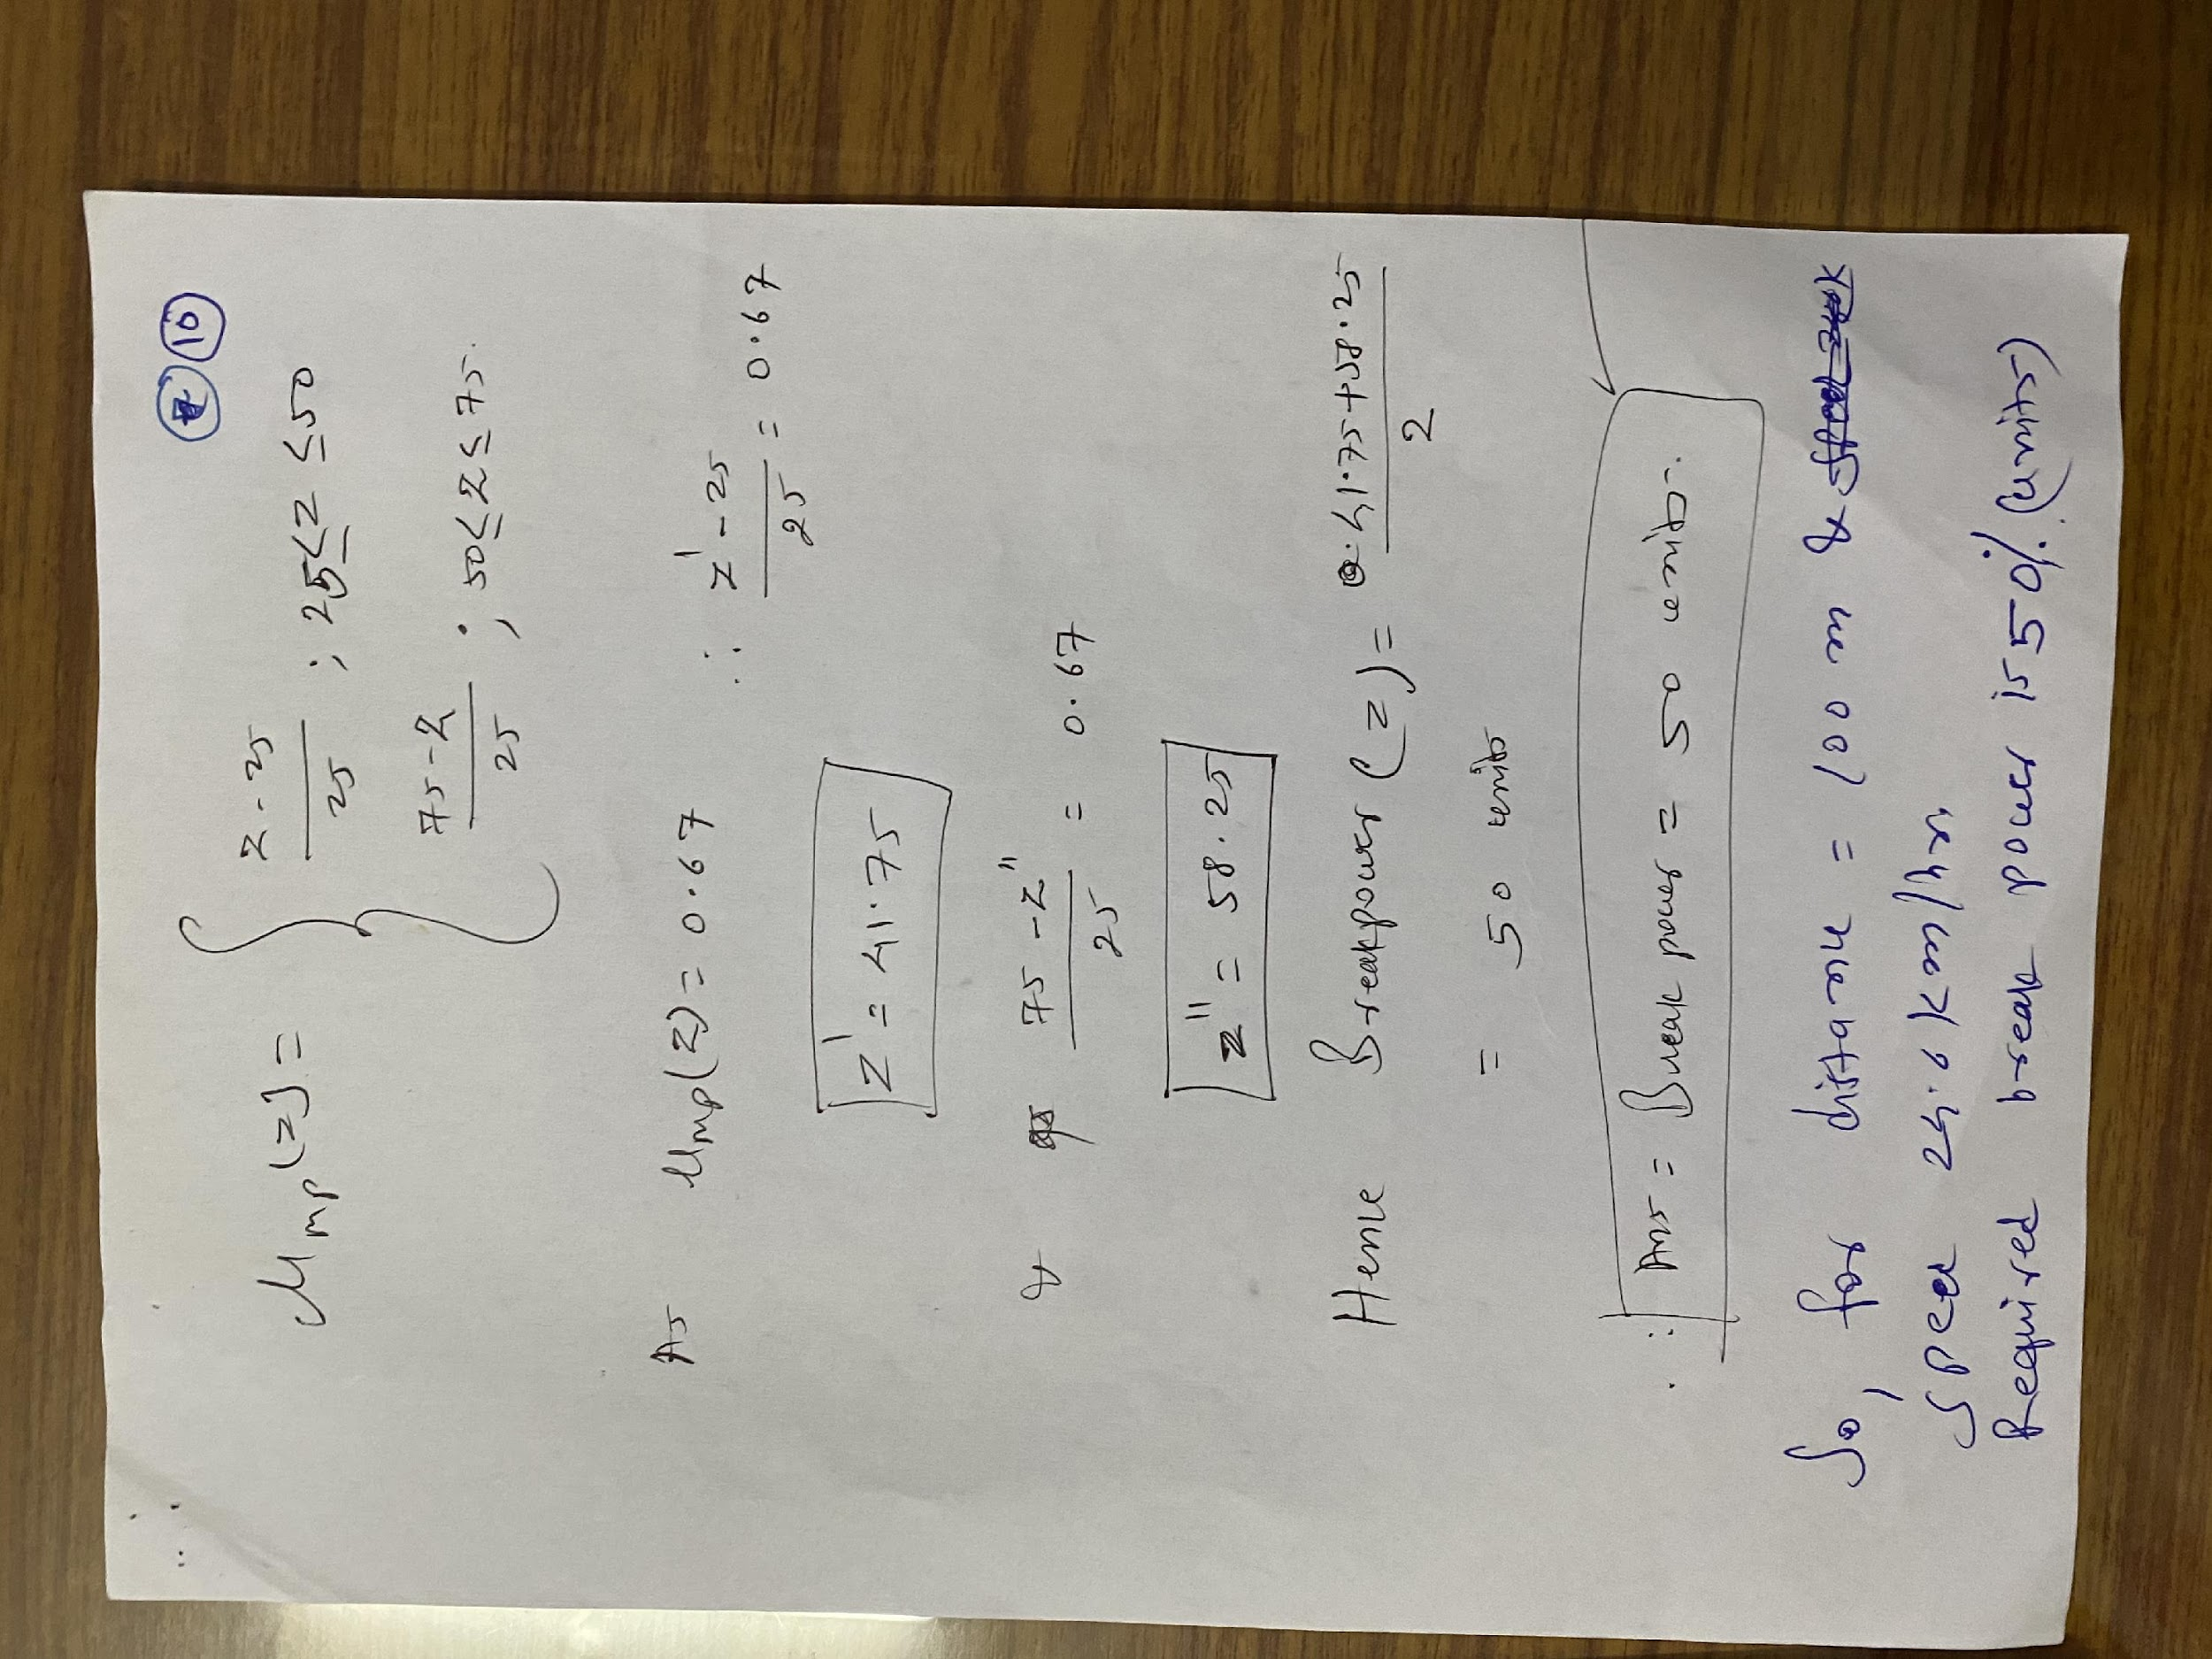 10
μmp(z) = { z-25 / 25 ; 25≤z≤50
75-z / 25 ; 50≤z≤75.
As μmp(z) = 0.67 ∴ z'-25 / 25 = 0.67
z' = 41.75
& 75-z'' / 25 = 0.67
z'' = 58.25
Hence Breakpower (z) = 41.75+58.25 / 2
= 50 units
∴ Ans = Break power = 50 units.
So, for distance = 100 m &
speed 24.0 km/hr,
Required break power is 50%. (units)